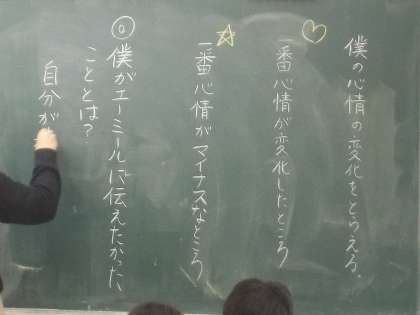 僕の心情の変化をとらえる。
一番心情が変化したところ
一番心情がマイナスなところ
◎僕がエーミールに伝えたかった
こととは?
自分が